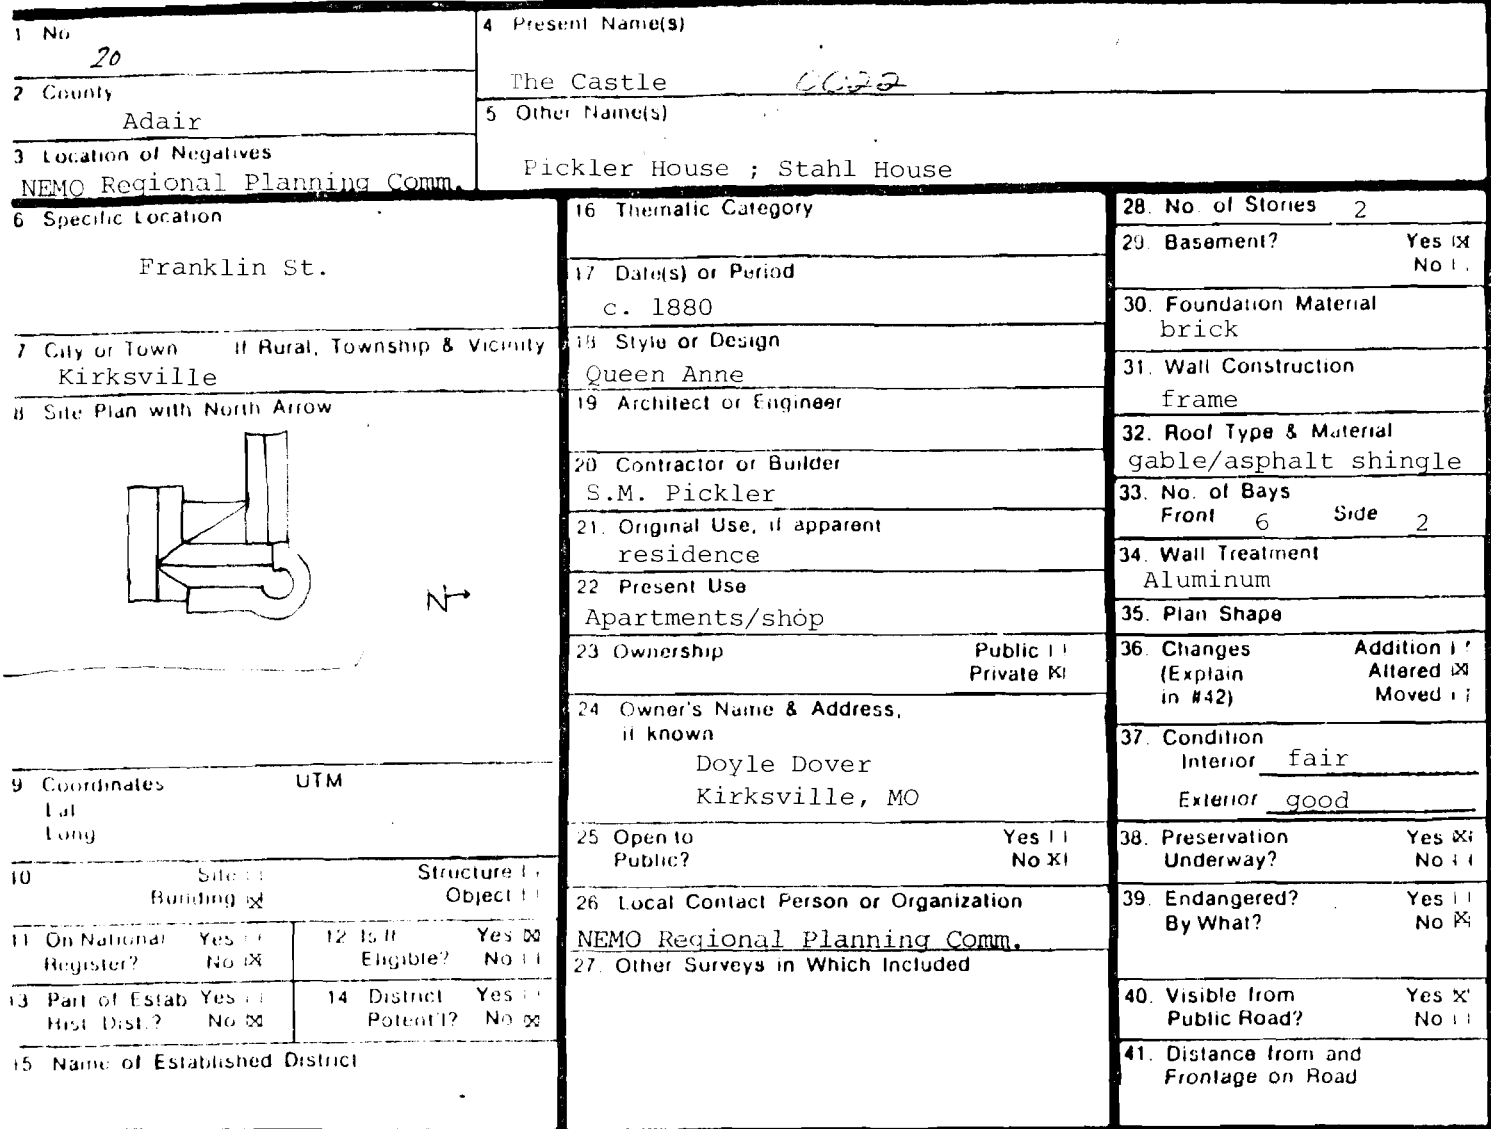 1 No
20
2 County
Adair
3 Location of Negatives
NEMO Regional Planning Comm.
4 Present Name(s)
The Castle
5 Other Name(s)
Pickler House ; Stahl House
6 Specific Location
Franklin St.
7 City or Town If Rural, Township & Vicinity
Kirksville
8 Site Plan with North Arrow
N
9 Coordinates UTM
Lat
Long
10 Site Structure
Building X Object
11 On National Yes
Register? No X
12 Is It Yes X
Eligible? No
13 Part of Estab Yes
Hist. Dist.? No X
14 District Yes
Potent'l? No X
15 Name of Established District
16 Thematic Category
17 Date(s) or Period
c. 1880
18 Style or Design
Queen Anne
19 Architect or Engineer
20 Contractor or Builder
S.M. Pickler
21. Original Use, if apparent
residence
22 Present Use
Apartments/shop
23 Ownership Public
Private X
24 Owner's Name & Address,
if known
Doyle Dover
Kirksville, MO
25 Open to Yes
Public? No X
26 Local Contact Person or Organization
NEMO Regional Planning Comm.
27. Other Surveys in Which Included
28. No. of Stories 2
29. Basement? Yes X
No
30. Foundation Material
brick
31. Wall Construction
frame
32. Roof Type & Material
gable/asphalt shingle
33. No. of Bays
Front 6 Side 2
34. Wall Treatment
Aluminum
35. Plan Shape
36. Changes Addition
(Explain Altered X
in #42) Moved
37. Condition
Interior fair
Exterior good
38. Preservation Yes X
Underway? No
39. Endangered? Yes
By What? No X
40. Visible from Yes X
Public Road? No
41. Distance from and
Frontage on Road